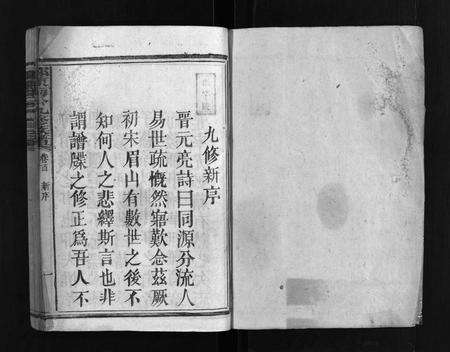 九修新序
晉元亮詩曰同源分流人
易世疏慨然寤歎念茲厥
初宋眉山有數世之後不
知何人之悲繹斯言也非
謂譜牒之修正爲吾人不
卷首 新序 一